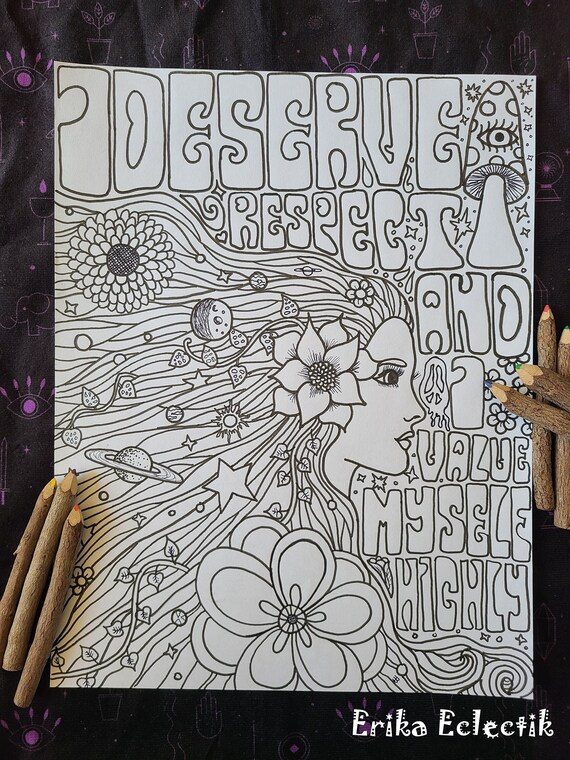 I DESERVE
RESPECT
AND
I
VALUE
MYSELF
HIGHLY
Erika Eclectik